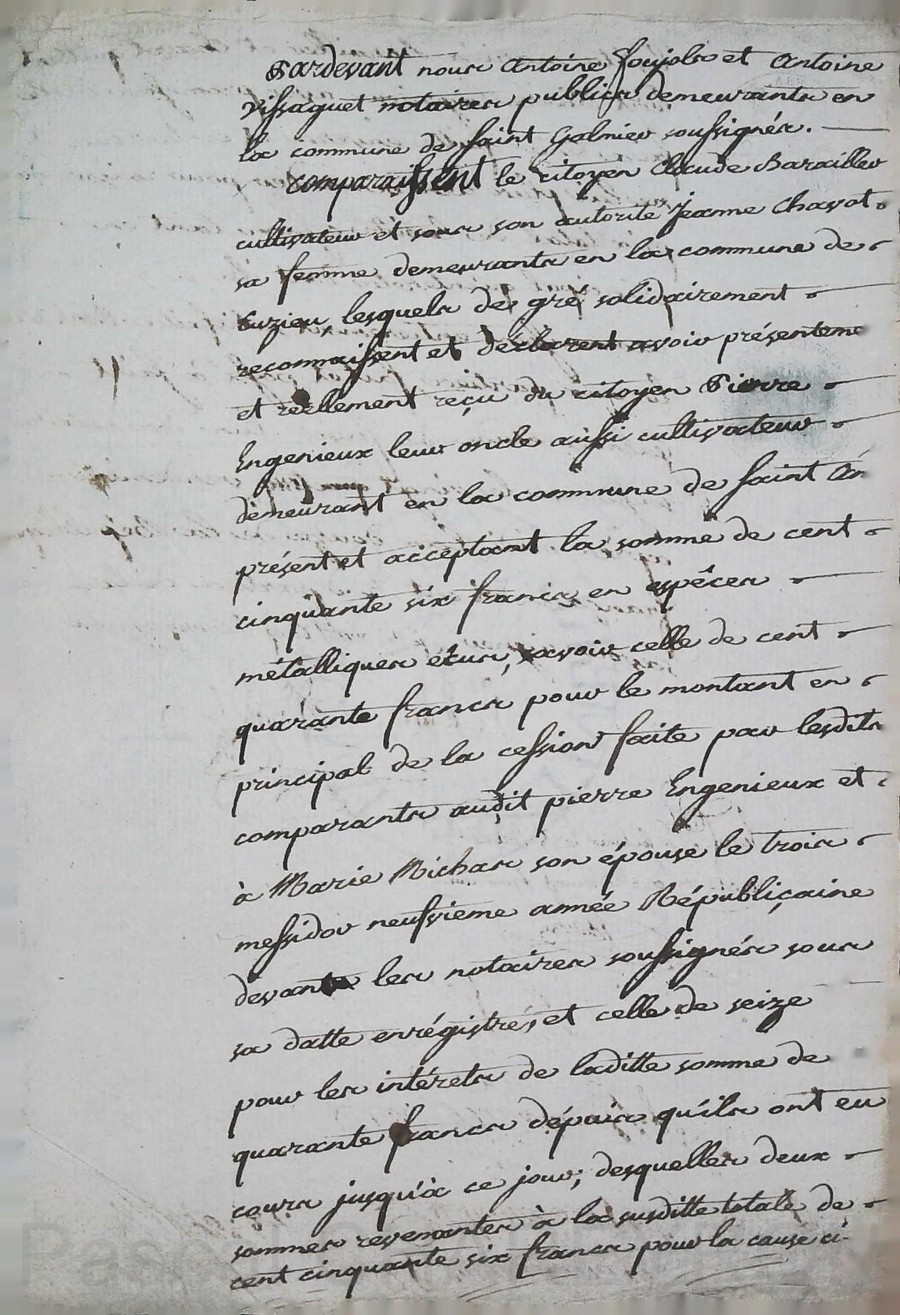 Pardevant nous Antoine foujols et Antoine
Vissaguet notaires publics demeurants en
la commune de saint Galmier soussignés.
comparaissent le citoyen Claude Barailler
cultivateur et sous son autorité Jeanne Chavot
sa femme demeurants en la commune de
Cuzieu, lesquels de gré solidairement
reconnaissent et déclarent avoir présenteme
et réellement reçu du citoyen Pierre
Engenieux leur oncle aussi cultivateur
demeurant en la commune de saint An
présent et acceptant la somme de cent
cinquante six francs en espéces
métalliques ecus, savoir celle de cent
quarante francs pour le montant en
principal de la cession faite par lesdits
comparants audit pierre Engenieux et
à Marie Michas son épouse le trois
messidor neufvieme année Républiçaine
devant les notaires soussignés sous
sa datte enrégistrés, et celle de seize
pour les intérets de laditte somme de
quarante francs dépuis qu'ils ont eu
cours jusqu'à ce jour; desquelles deux
sommes revenantes à la susditte totale de
cent cinquante six francs pour la cause ci-